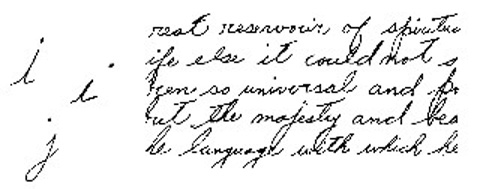 i
i
j
reat reservoir of spiritu
ife else it could not s
een so universal and po
ut the majesty and bea
he language with which he